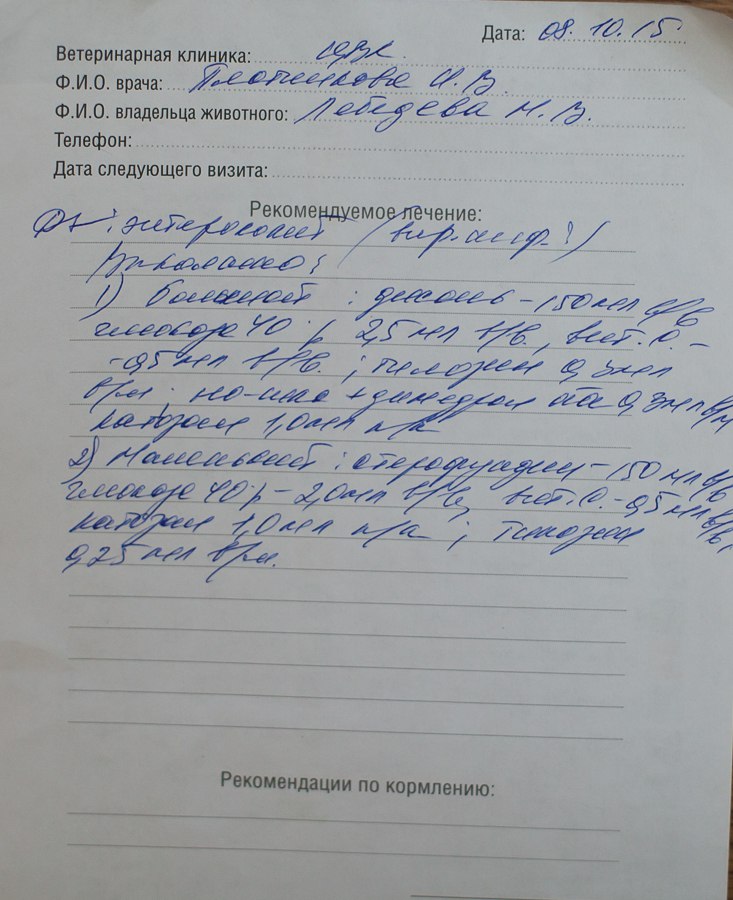 Дата: 08.10.15
Ветеринарная клиника:
Ф.И.О. врача: Плотникова И. В.
Ф.И.О. владельца животного: Лебедева Н. В.
Телефон:
Дата следующего визита:
Рекомендуемое лечение:
Ds: энтероколит (вир. инф.?)
Вколото:
1) Большой : дисоль – 150 мл в/в
глюкоза 40% 2,5 мл в/в, вит. С. –
– 0,5 мл в/в. ; тимоген 0,3 мл
в/м. но-шпа + димедрол аа 0,3 мл в/м
катозал 1,0 мл п/к
2) Маленький : стерофундин – 150 мл в/в
глюкоза 40% – 2,0 мл в/в, вит. С. – 0,5 мл в/в,
катозал 1,0 мл п/к ; тимоген
0,25 мл в/м.
Рекомендации по кормлению: